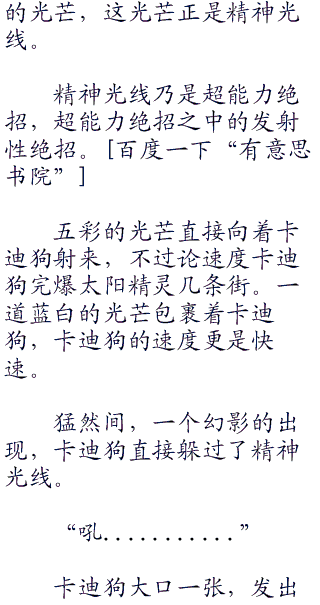 的光芒，这光芒正是精神光
线。
精神光线乃是超能力绝
招，超能力绝招之中的发射
性绝招。[百度一下“有意思
书院”]
五彩的光芒直接向着卡
迪狗射来，不过论速度卡迪
狗完爆太阳精灵几条街。一
道蓝白的光芒包裹着卡迪
狗，卡迪狗的速度更是快
速。
猛然间，一个幻影的出
现，卡迪狗直接躲过了精神
光线。
“吼...........”
卡迪狗大口一张，发出